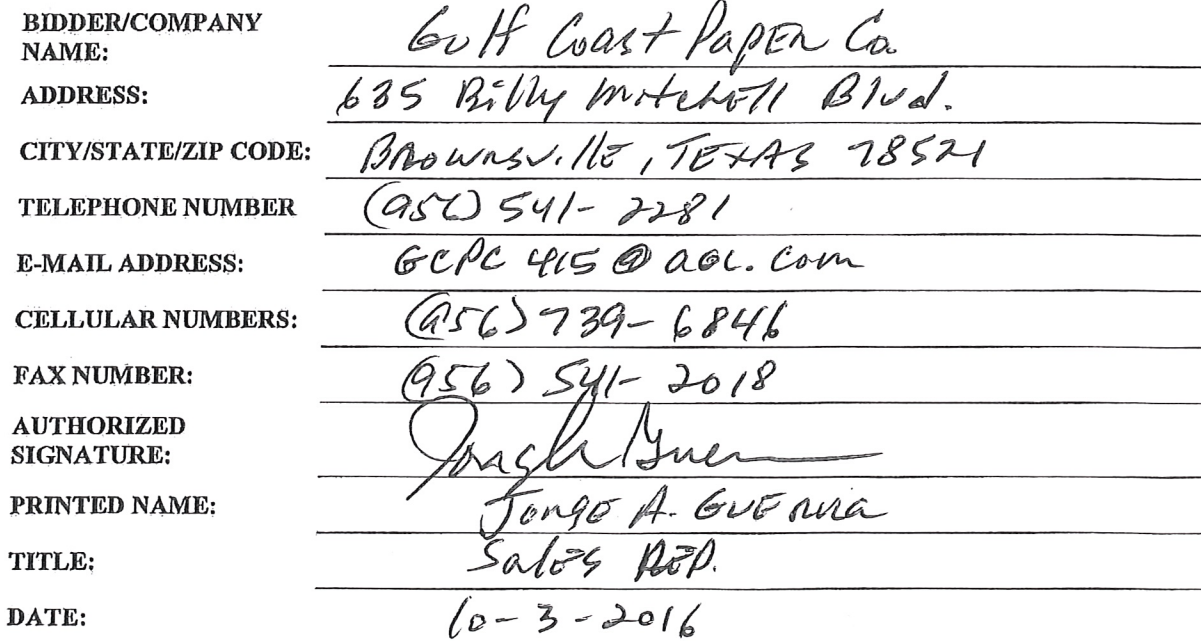 BIDDER/COMPANY
NAME: Gulf Coast Paper Co.
ADDRESS: 635 Billy Mitchell Blvd.
CITY/STATE/ZIP CODE: Brownsville, TEXAS 78521
TELEPHONE NUMBER (956) 541-2281
E-MAIL ADDRESS: GCPC 415 @ aol.com
CELLULAR NUMBERS: (956) 739-6846
FAX NUMBER: (956) 541-2018
AUTHORIZED
SIGNATURE:
PRINTED NAME: Jorge A. Guerra
TITLE: Sales REP.
DATE: 10-3-2016